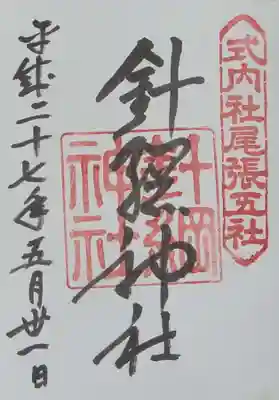 式内社尾張五社
針綱神社
針綱神社
平成二十七年五月卅一日